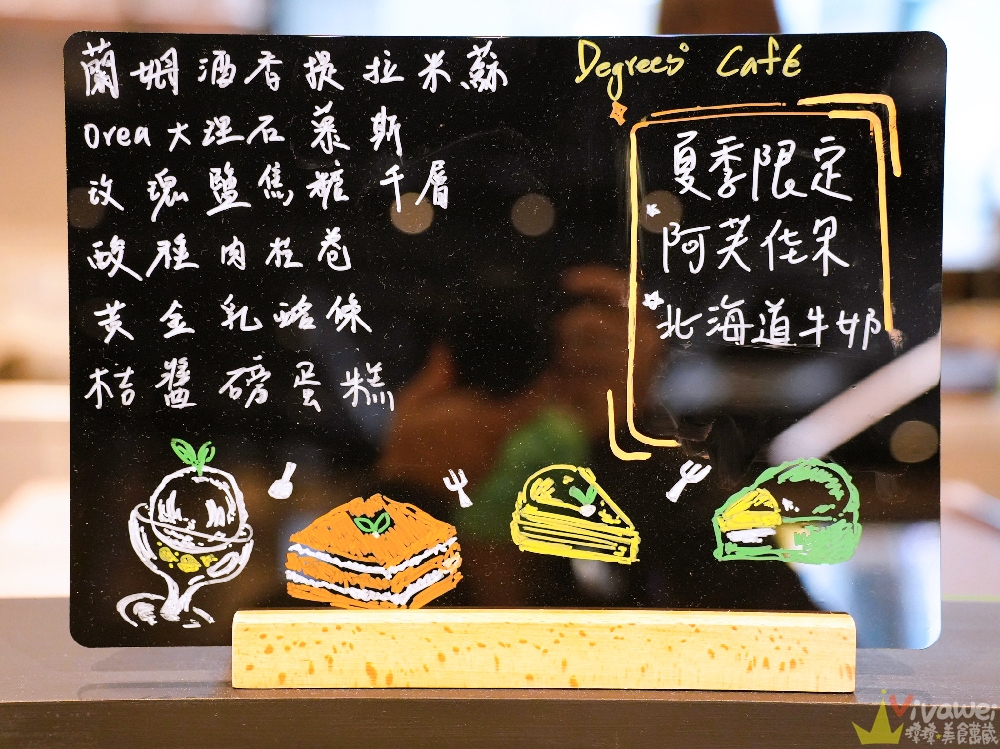 蘭姆酒香提拉米蘇
Orea大理石慕斯
玫瑰鹽焦糖千層
酸種肉桂卷
黃金乳酪條
桔醬磅蛋糕
Degrees Café
夏季限定
阿芙佳果
北海道牛奶
Vivawei
瑋瑋*美食萬歲